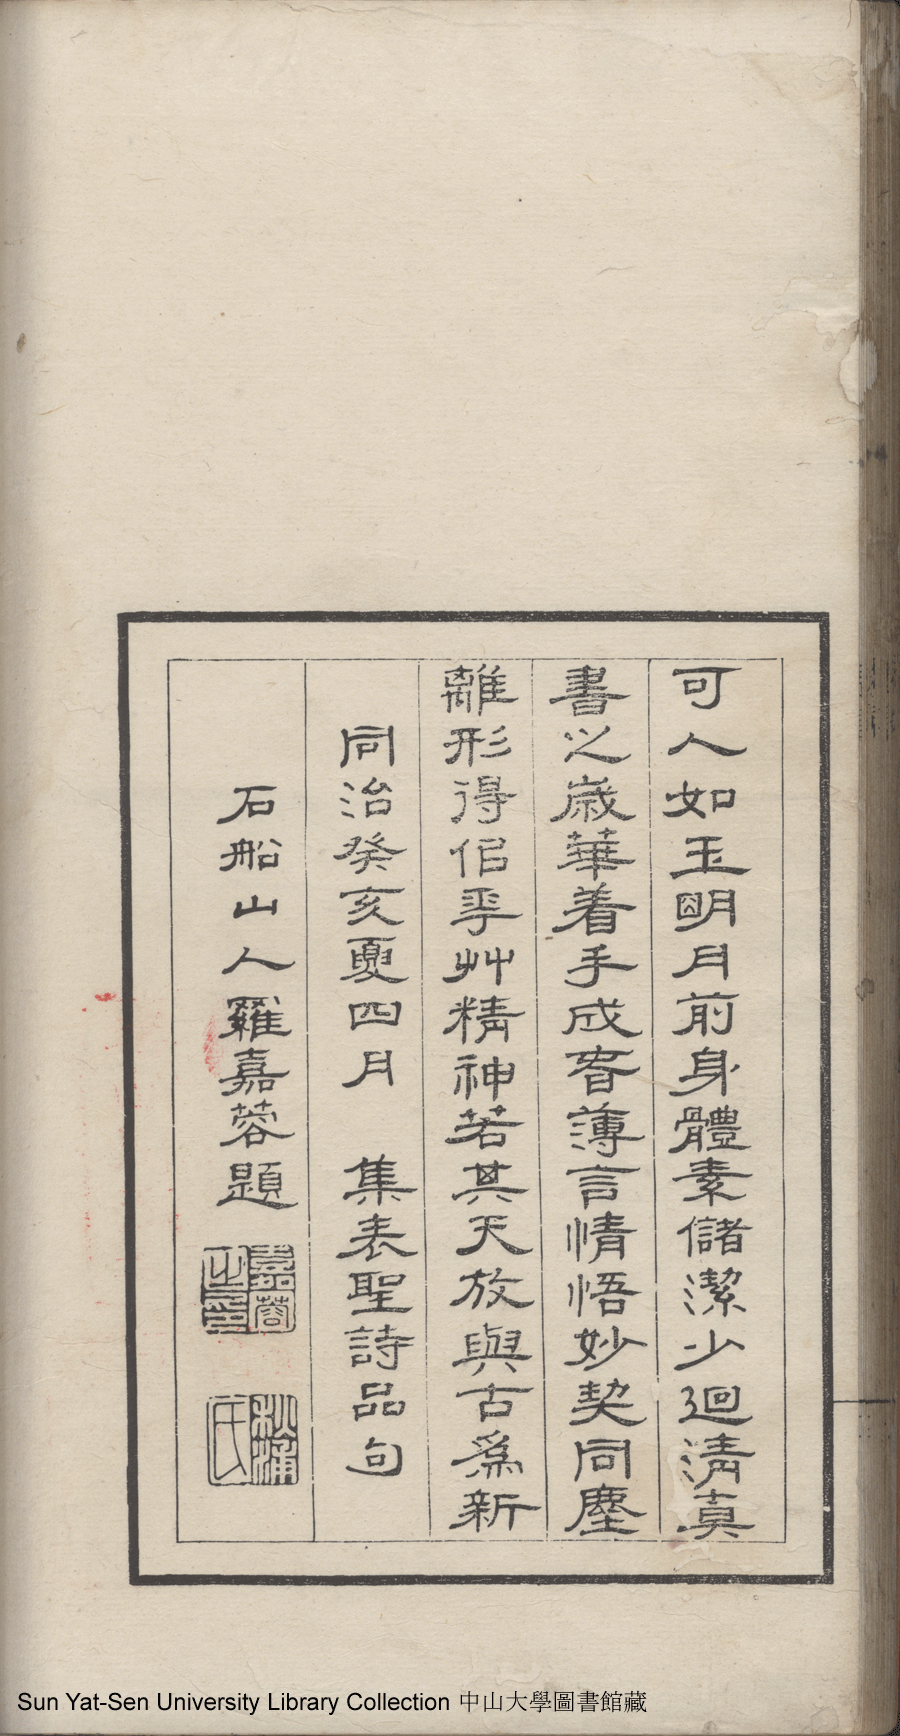 可人如玉明月前身體素儲潔少迴清真
書之歲華着手成春薄言情悟妙契同塵
離形得佀乎艸精神若其天放與古爲新
同治癸亥夏四月　集表聖詩品句
石船山人羅嘉蓉題
嘉蓉之印
秋浦氏
Sun Yat-Sen University Library Collection 中山大學圖書館藏